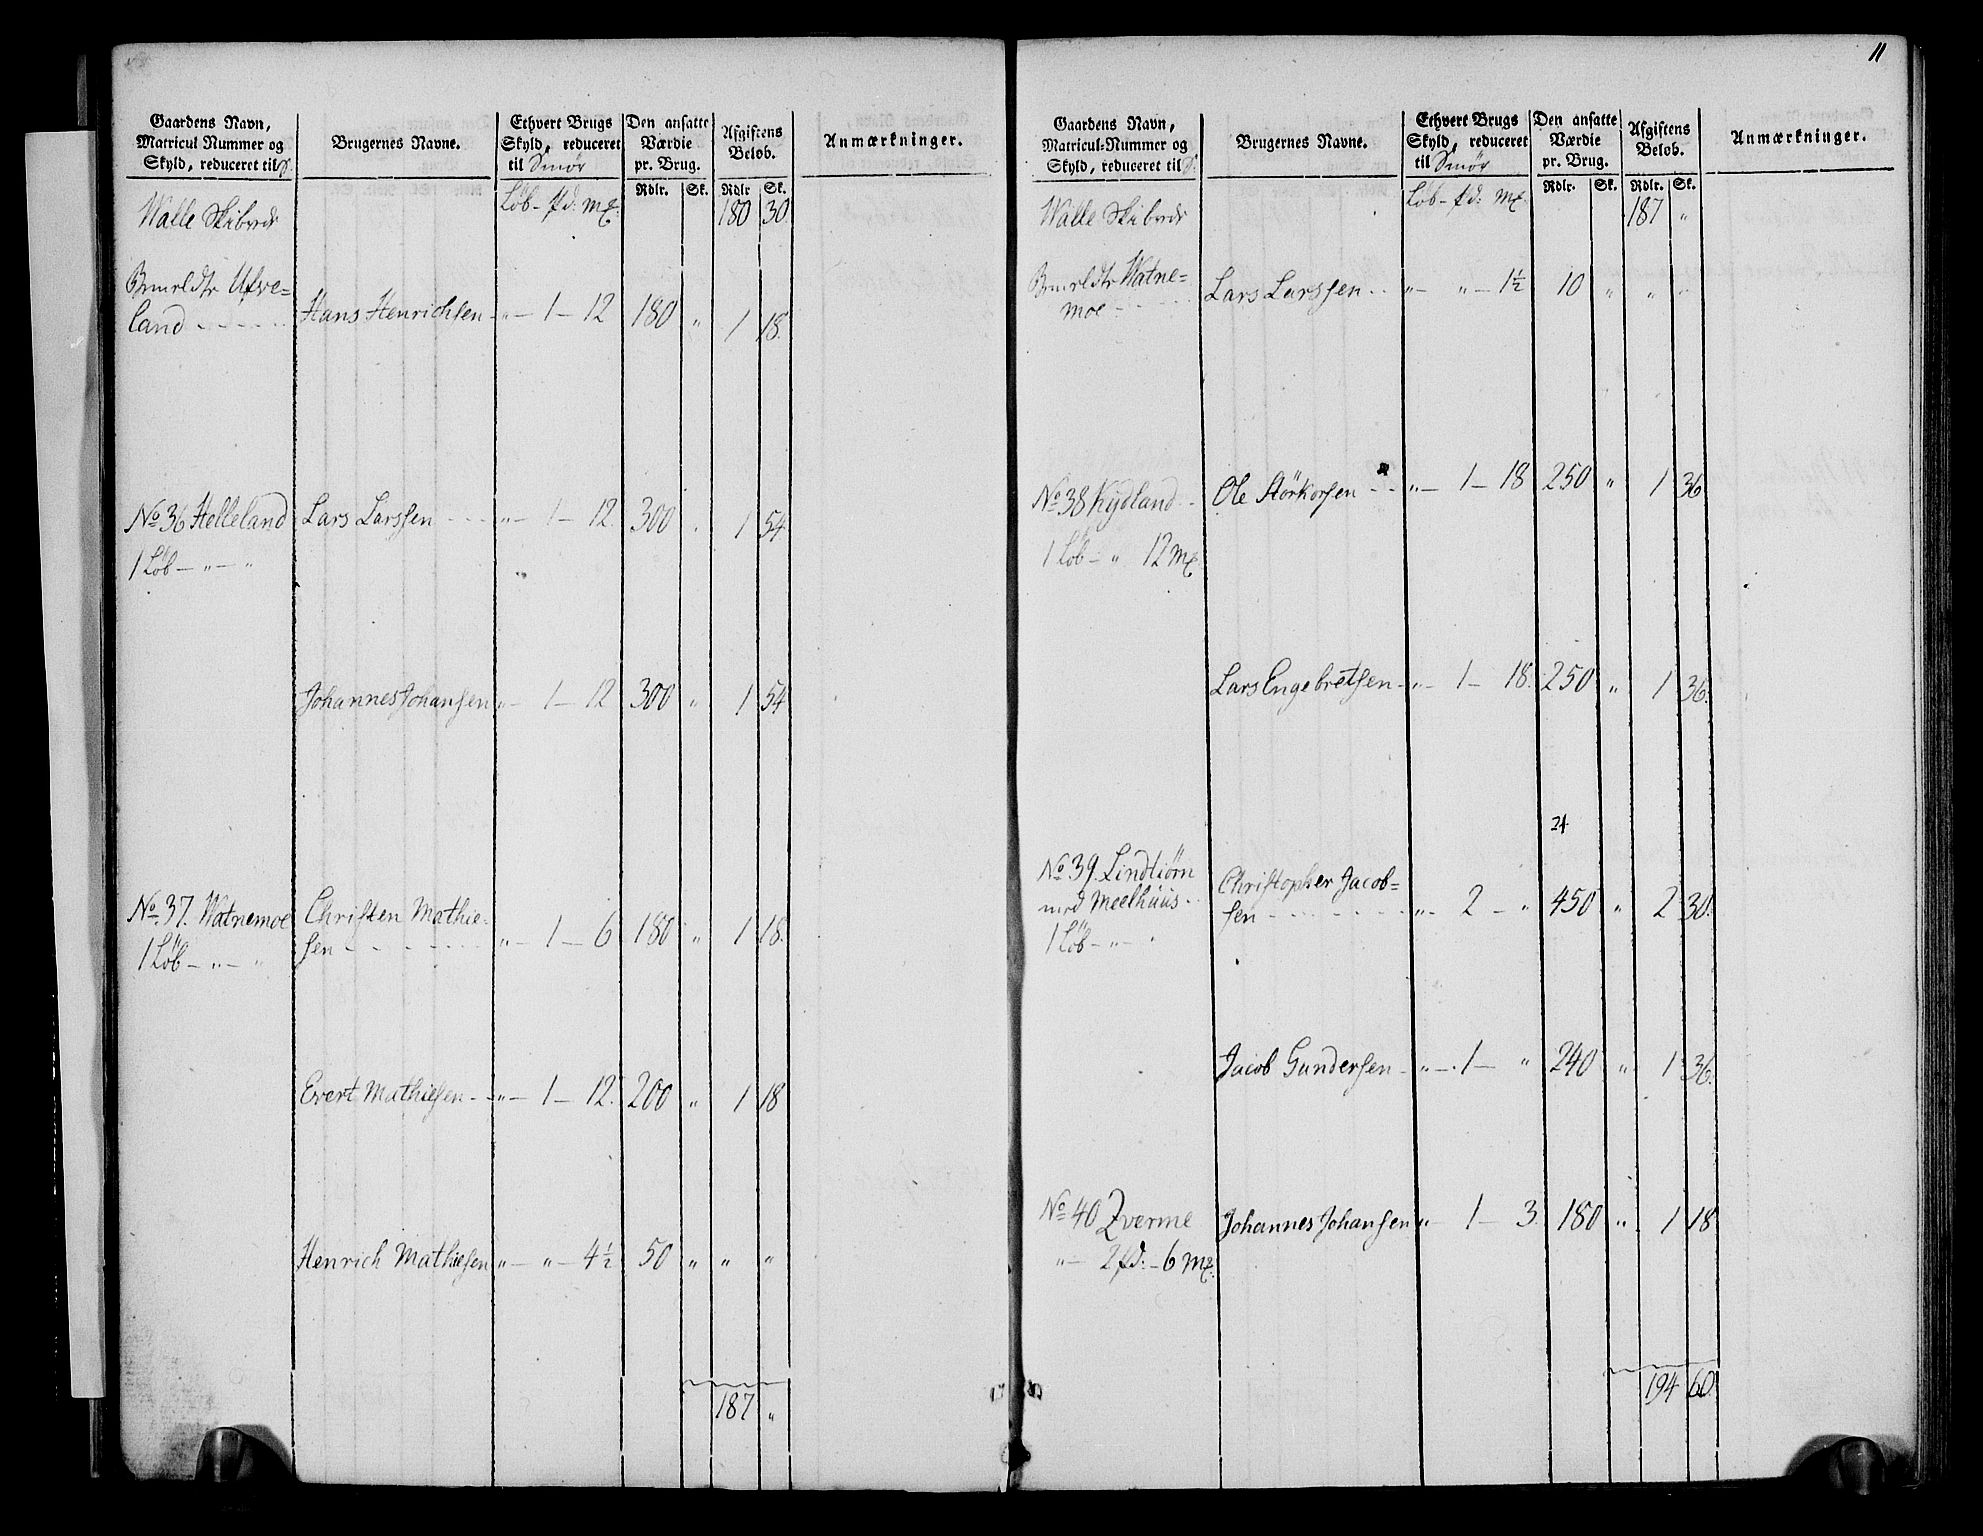 Gaardens Navn,
Matricul Nummer og
Skyld, reduceret til
Brugernes Navne.
Ethvert Brugs
Skyld, reduceret
til Smør
Den ansatte
Værdie
pr. Brug.
Afgiftens
Beløb.
Anmærkninger.
Rdlr. Sk. Rdlr Sk.
Løb - pd: Mk:
Walle Skibrede 180 30
Ufve=
land - - - - - Hans Henrichsen - " - 1 - 12 180 " 1 18.
No 36 Helleland Lars Larssen - - - " - 1 - 12. 300 . 1 54
1 Løb - " - "
Johannes Johansen " - 1 - 12 300 " 1 54
No 37. Watnemoe Christen Mathie-
1 Løb - " - " sen - - - - - - " - 1 - 6 180 " 1 18.
Evert Mathiesen - - " - 1 - 12. 200 " 1 18
Henrich Mathiesen " - " - 4½ 50 " " "
187 "
11
Gaardens Navn,
Matricul-Nummer og
Skyld, reduceret til
Brugernes Navne.
Ethvert Brugs
Skyld, reduceret
til Smør
Den ansatte
Værdie
pr. Brug.
Afgiftens
Beløb.
Anmærkninger.
Rdlr. Sk. Rdlr. Sk.
Løb - pd: Mk.
Walle Skibrede 187 "
Watne=
moe - - - - Lars Larssen - - " - " - 1½ 10 " " "
No 38 Kydland - - Ole Størkorsen - - " - 1 - 18 250 " 1 36
1 Løb - " 12 Mk.
Lars Engebretsen - " - 1 - 18. 250 " 1 36.
21.
No 39. Lindtiørn Christopher Jacob=
med Meelhuus - - sen - - - - - - - " - 2 - " 450 " 2 30.
1 Løb - " - "
Jacob Gundersen - " - 1 - " 240 " 1 36.
No 40 Qverme Johannes Johansen " - 1 - 3 180 " 1 18
" - 2 pd: - 6 Mk:
194 60.